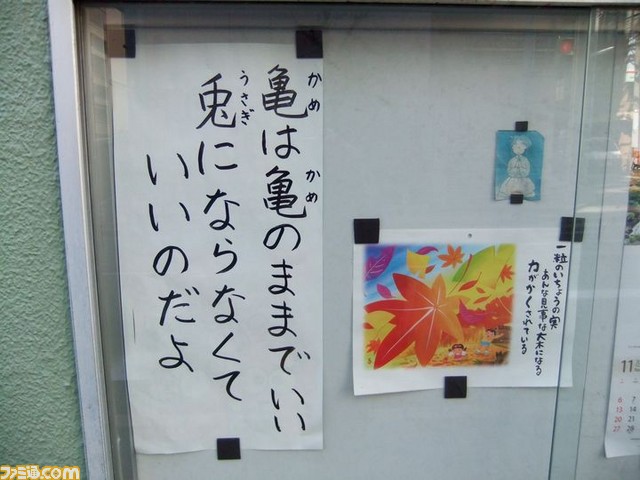 亀は亀のままでいい
かめ
かめ
兎にならなくて
うさぎ
いいのだよ
一粒のいちょうの実
あんな見事な大木になる
力がかくされている
11
6 7
13 14
20 21
27 28
ファミ通.com